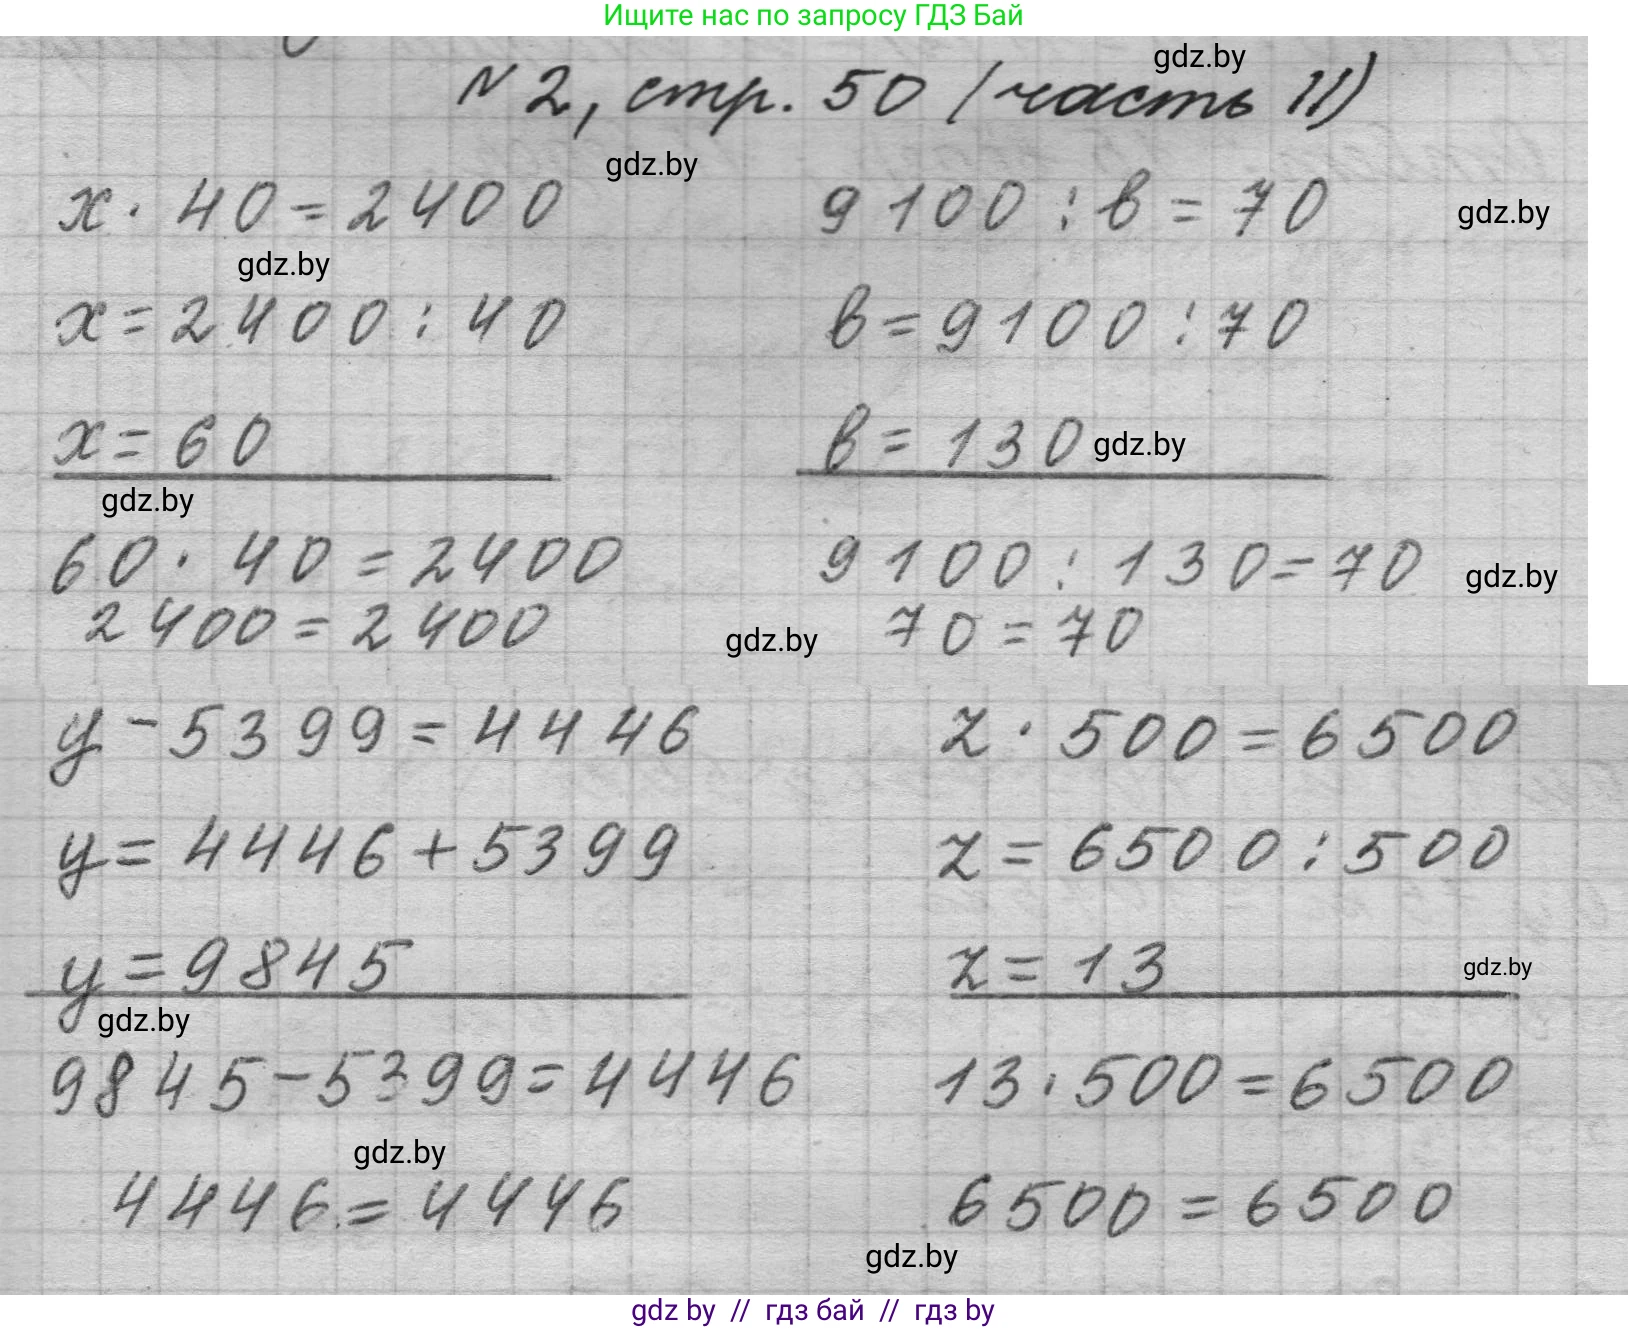 Ищите нас по запросу ГДЗ Бай
gdz.by
N 2, стр. 50 (часть II)
gdz.by
x · 40 = 2400
9100 : в = 70
gdz.by
gdz.by
x = 2400 : 40
в = 9100 : 70
x = 60
в = 130
gdz.by
gdz.by
60 · 40 = 2400
9100 : 130 = 70
gdz.by
2400 = 2400
gdz.by
70 = 70
y - 5399 = 4446
z · 500 = 6500
y = 4446 + 5399
z = 6500 : 500
y = 9845
z = 13
gdz.by
gdz.by
9845 - 5399 = 4446
13 · 500 = 6500
gdz.by
4446 = 4446
6500 = 6500
gdz.by
gdz by // гдз бай // гдз by